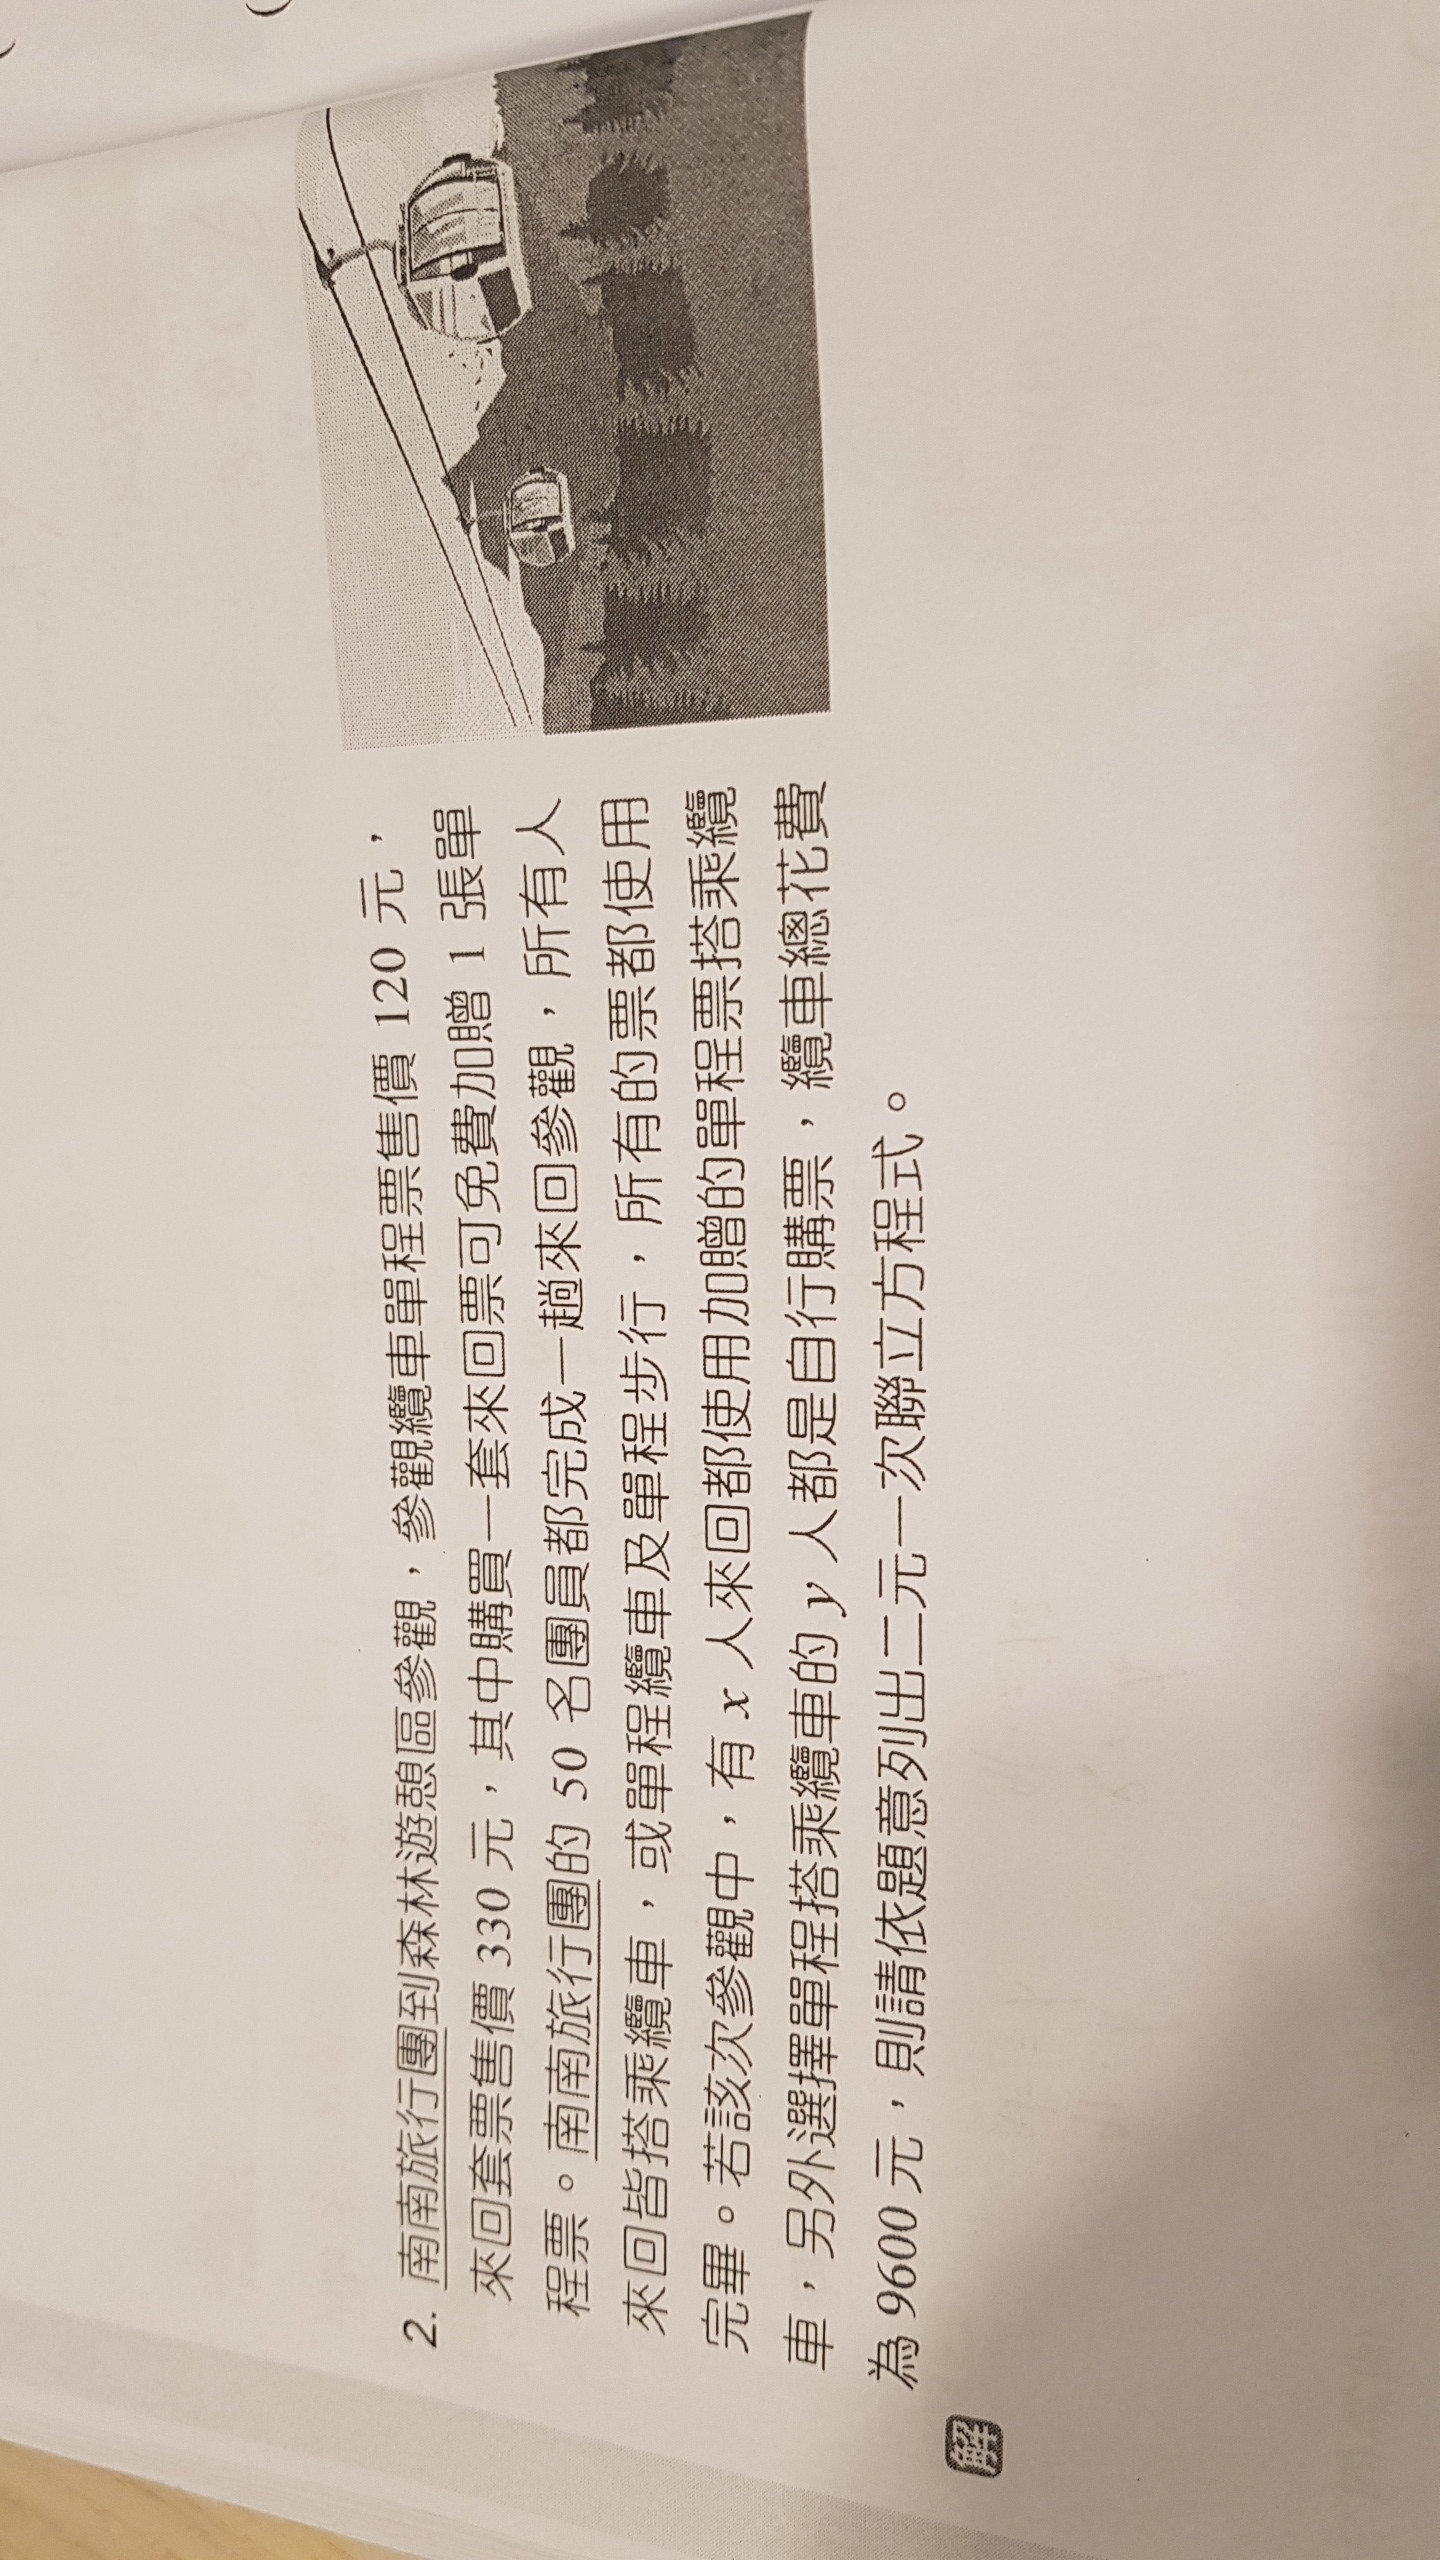 2. 南南旅行團到森林遊憩區參觀，參觀纜車單程票售價 120 元，
來回套票售價 330 元，其中購買一套來回票可免費加贈 1 張單
程票。南南旅行團的 50 名團員都完成一趟來回參觀，所有人
來回皆搭乘纜車，或單程纜車及單程步行，所有的票都使用
完畢。若該次參觀中，有 x 人來回都使用加贈的單程票搭乘纜
車，另外選擇單程搭乘纜車的 y 人都是自行購票，纜車總花費
為 9600 元，則請依題意列出二元一次聯立方程式。
解